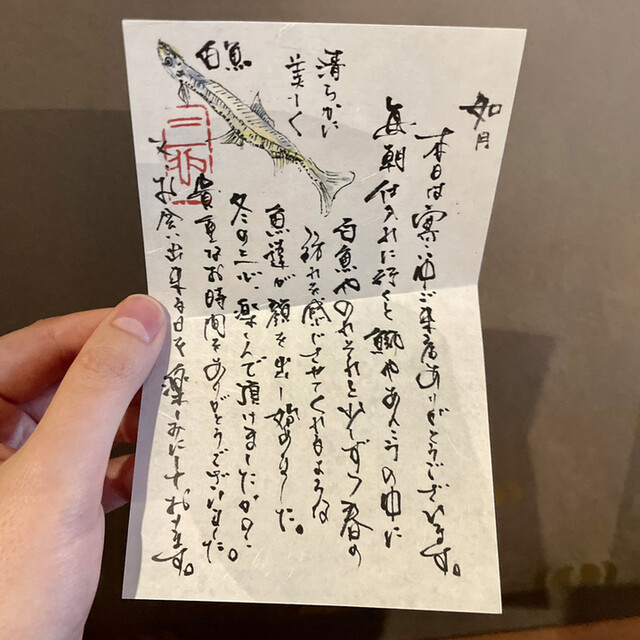 如月
本日は寒い中ご来店ありがとうございます。
毎朝仕入れに行くと鰤やあんこうの中に
白魚やのれそれと少しずつ春の
訪れを感じさせてくれるような
魚達が顔を出し始めました。
冬の上に楽しんで頂けましたか？
貴重なお時間をありがとうございました。
又、お会い出来る日を楽しみにしております。
清らかに
美しく
白魚